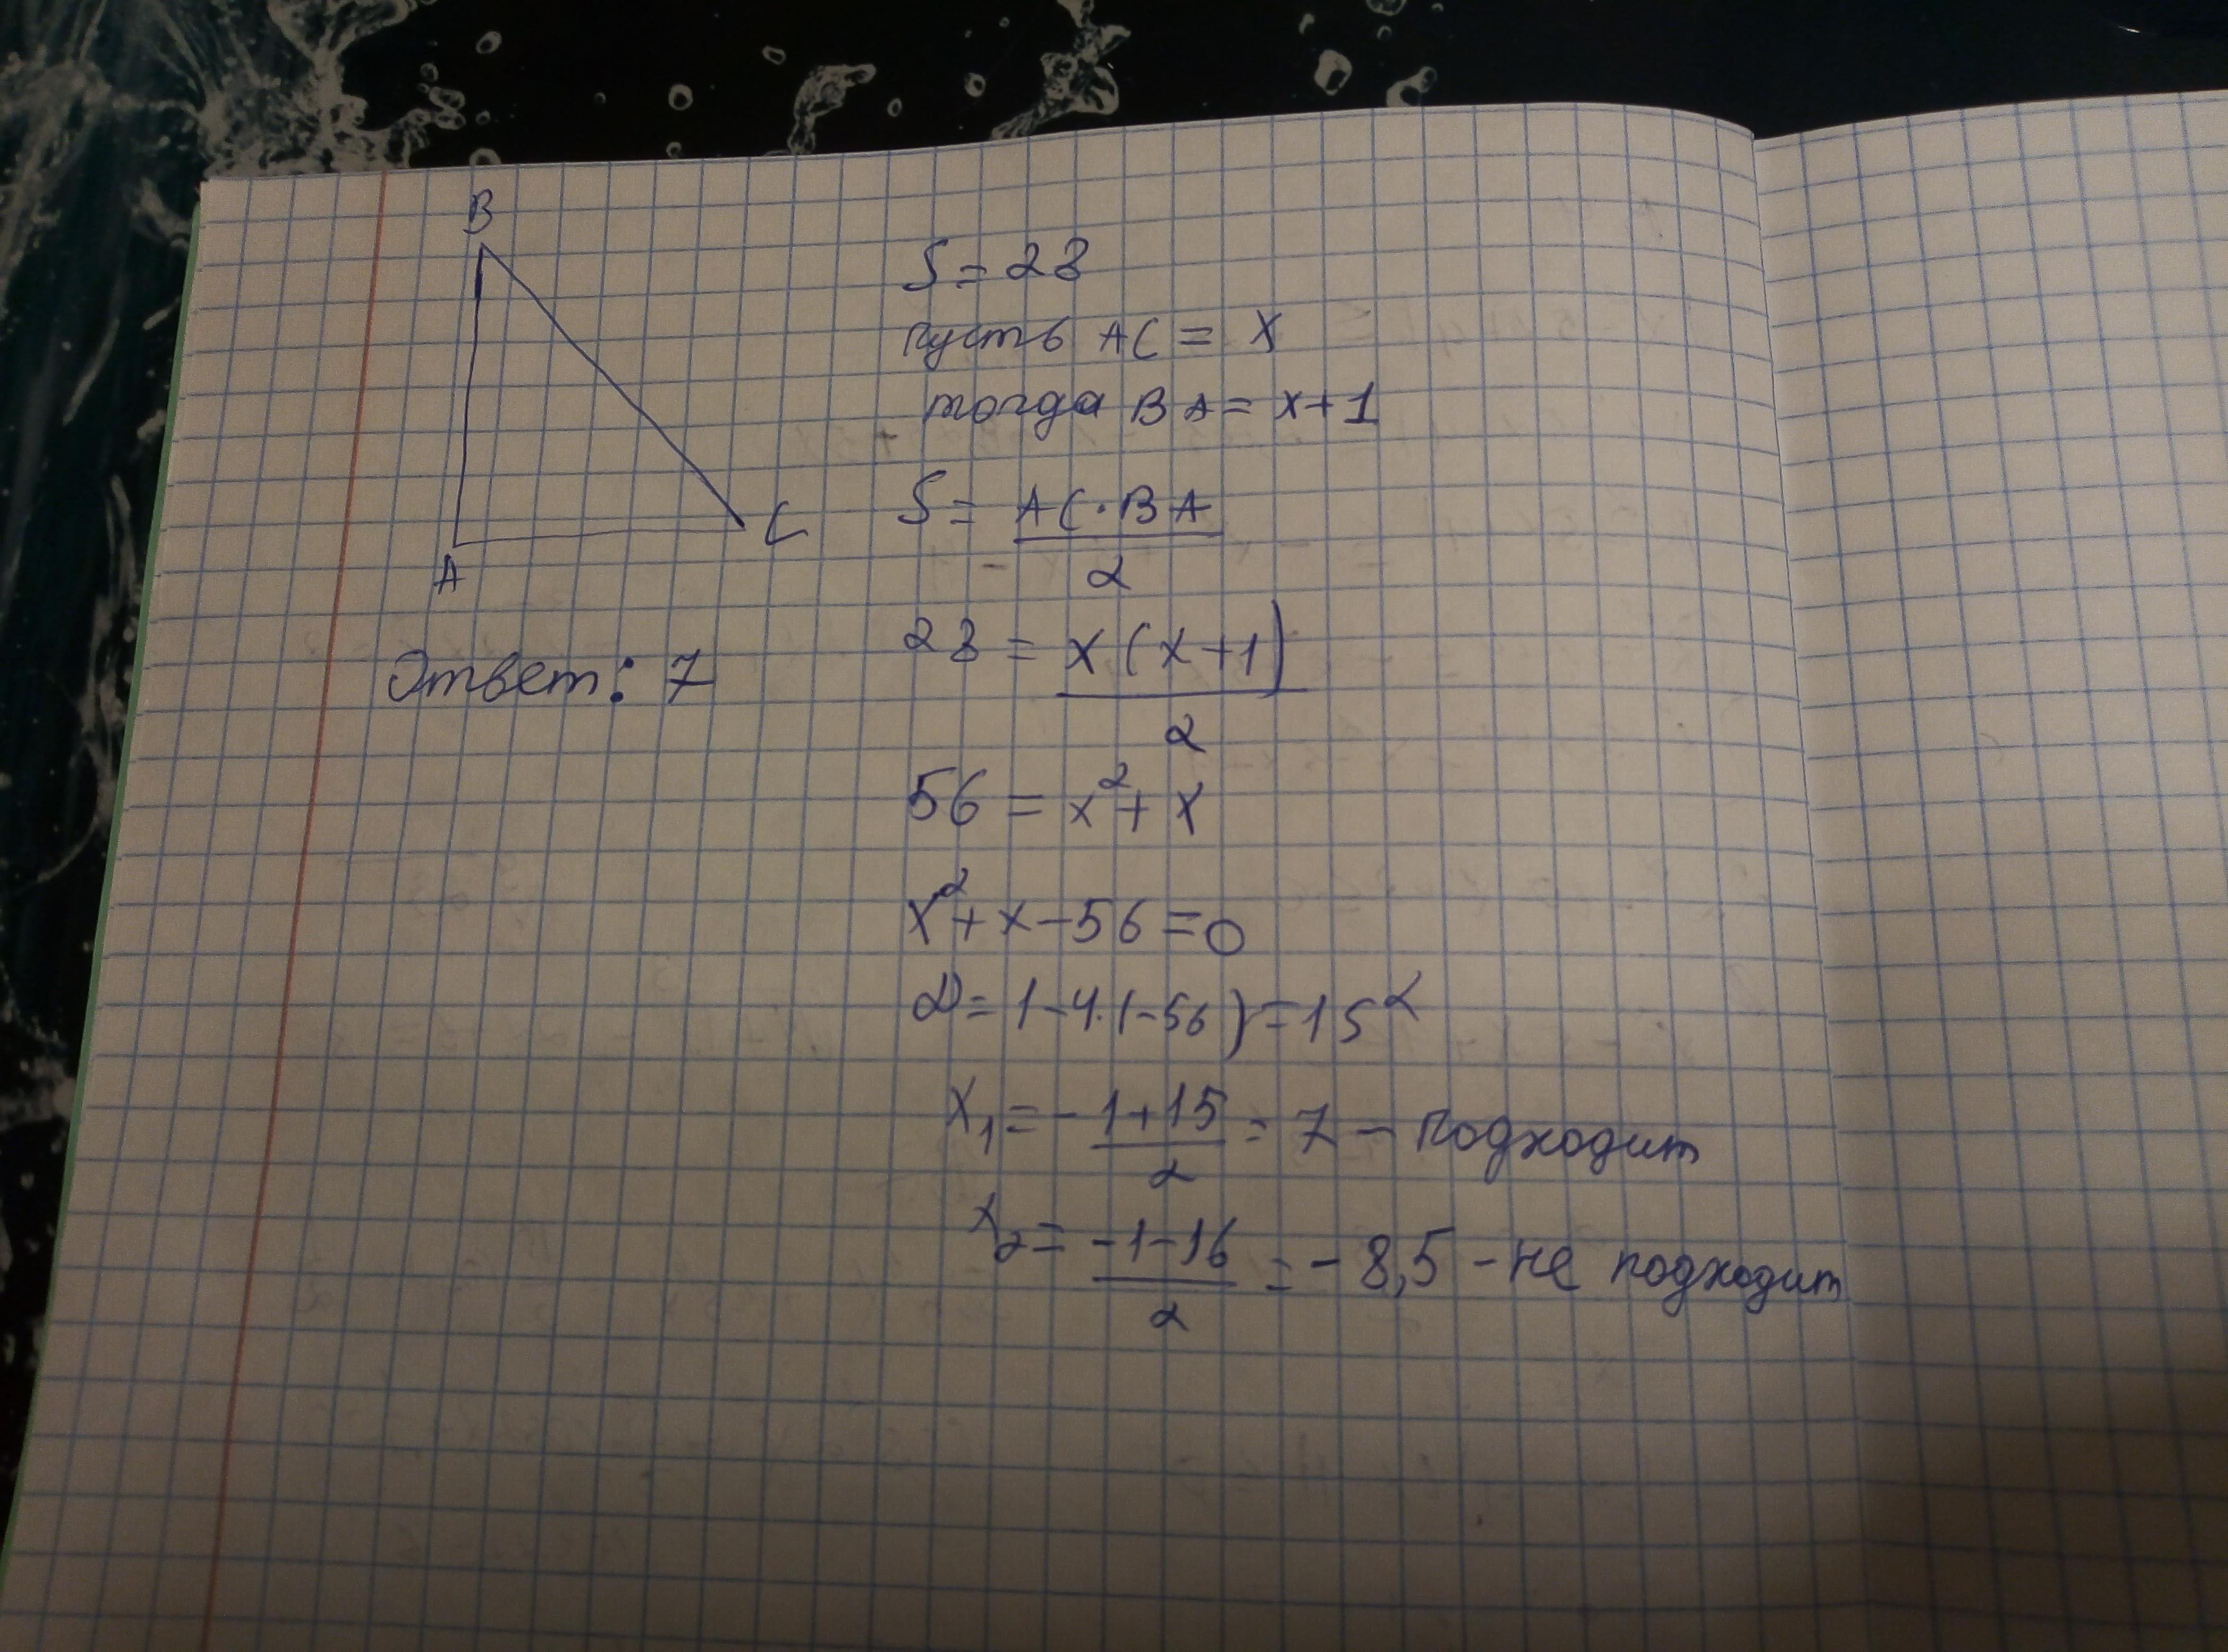 B
A
C
Ответ: 7
S = 28
пусть AC = x
тогда BA = x+1
S = AC·BA
2
28 = x(x+1)
2
56 = x²+x
x²+x-56=0
D=1-4·(-56)=15²
x₁=-1+15 = 7 - подходит
2
x₂=-1-16 = -8,5 - не подходит
2